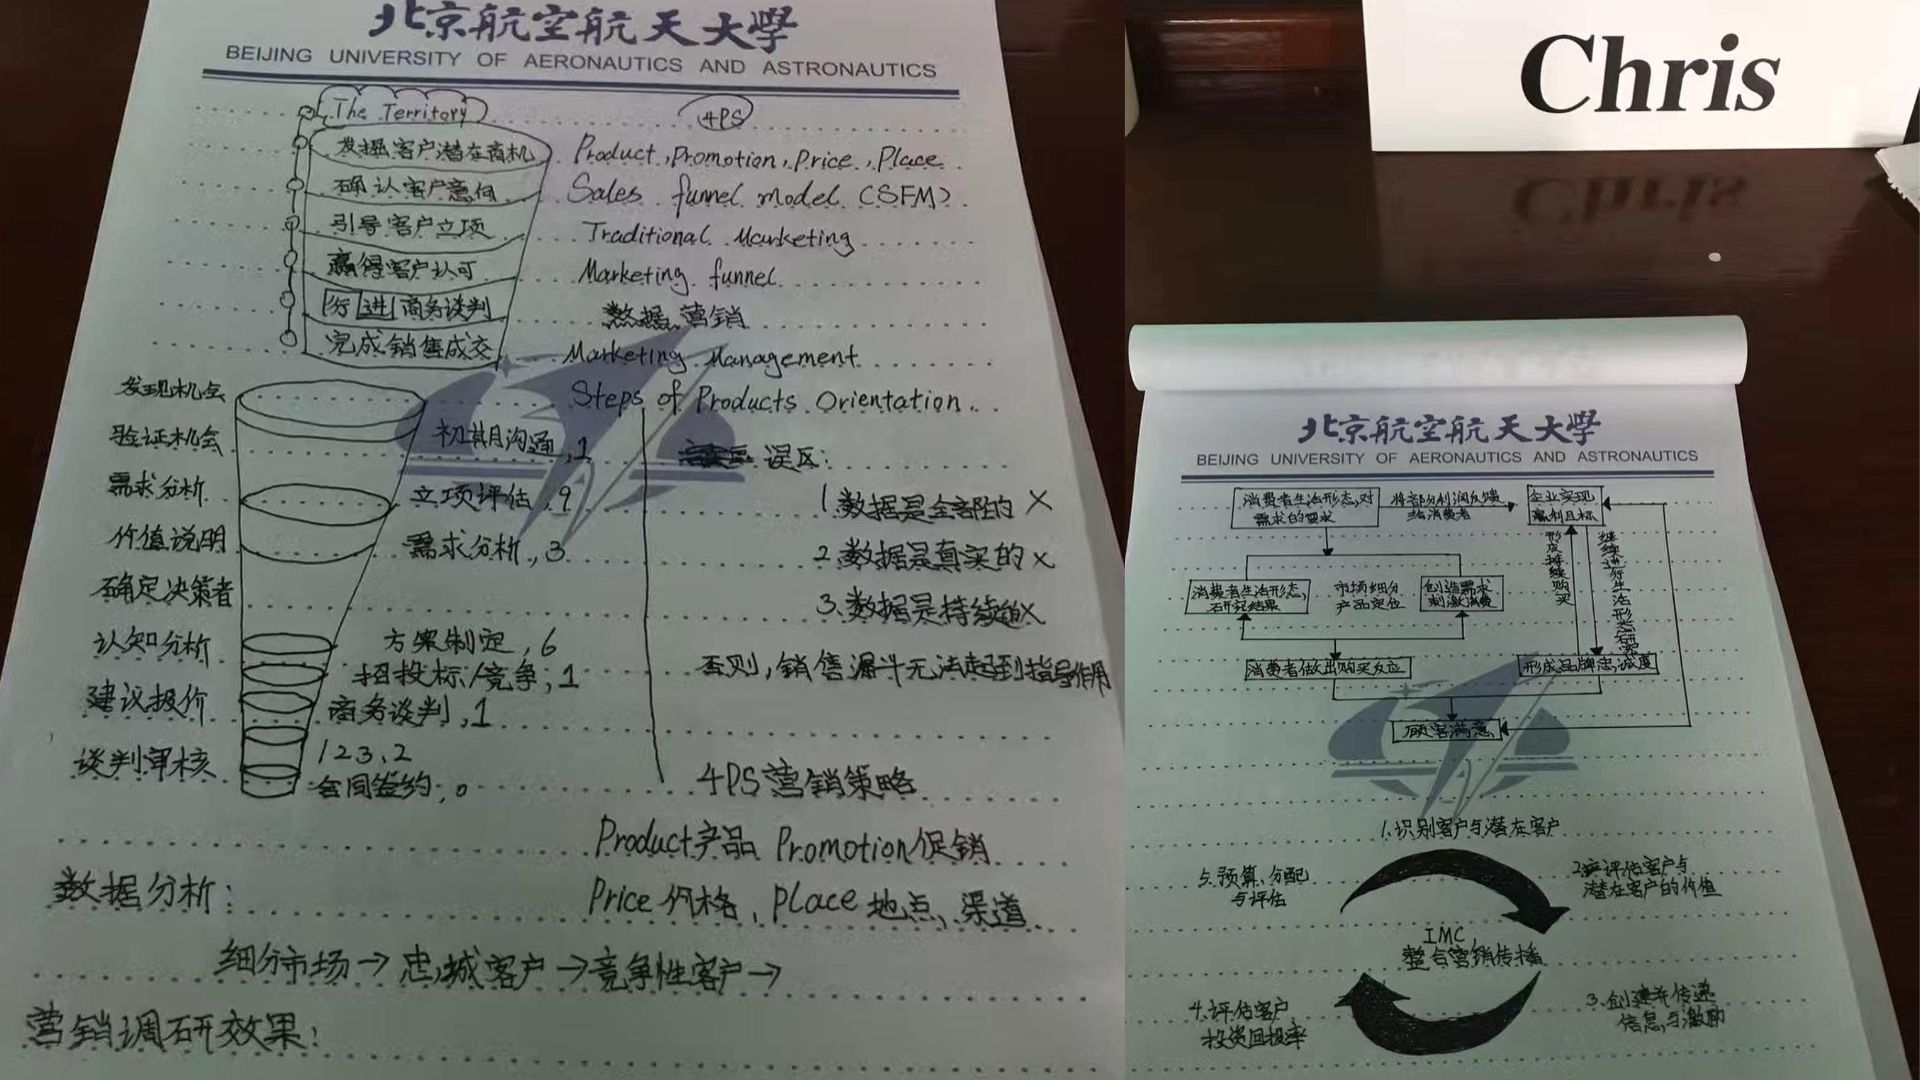 北京航空航天大學
BEIJING UNIVERSITY OF AERONAUTICS AND ASTRONAUTICS
The Territory
4PS
发掘客户潜在商机
Product, Promotion, Price, Place
确认客户意向
Sales funnel model (SFM)
引导客户立项
Traditional Marketing
赢得客户认可
Marketing funnel
行进商务谈判
数据营销
完成销售成交
Marketing Management
Steps of Products Orientation
发现机会
验证机会
需求分析
价值说明
确定决策者
认知分析
建议报价
谈判审核
初期沟通,1
立项评估,9
需求分析,3
方案制定,6
招投标/竞争,1
商务谈判,1
123,2
合同签约,0
误区:
1.数据是全部的 X
2.数据是真实的 X
3.数据是持续的X
否则,销售漏斗无法起到指导作用
4PS营销策略
Product产品 Promotion促销
Price价格、Place地点、渠道
数据分析:
细分市场→忠诚客户→竞争性客户→
营销调研效果:
Chris
北京航空航天大學
BEIJING UNIVERSITY OF AERONAUTICS AND ASTRONAUTICS
消费者生活形态,对
需求的要求
将部分利润反馈
给消费者
企业实现
赢利目标
形成持续购买
继续进行生活形态研究
消费者生活形态,
研究结果
市场细分
产品定位
创造需求
刺激消费
消费者做出购买反应
形成品牌忠诚度
顾客满意
1.识别客户与潜在客户
2.评估客户与
潜在客户的价值
3.创建并传递
信息与激励
4.评估客户
投资回报率
5.预算、分配
与评估
IMC
整合营销传播